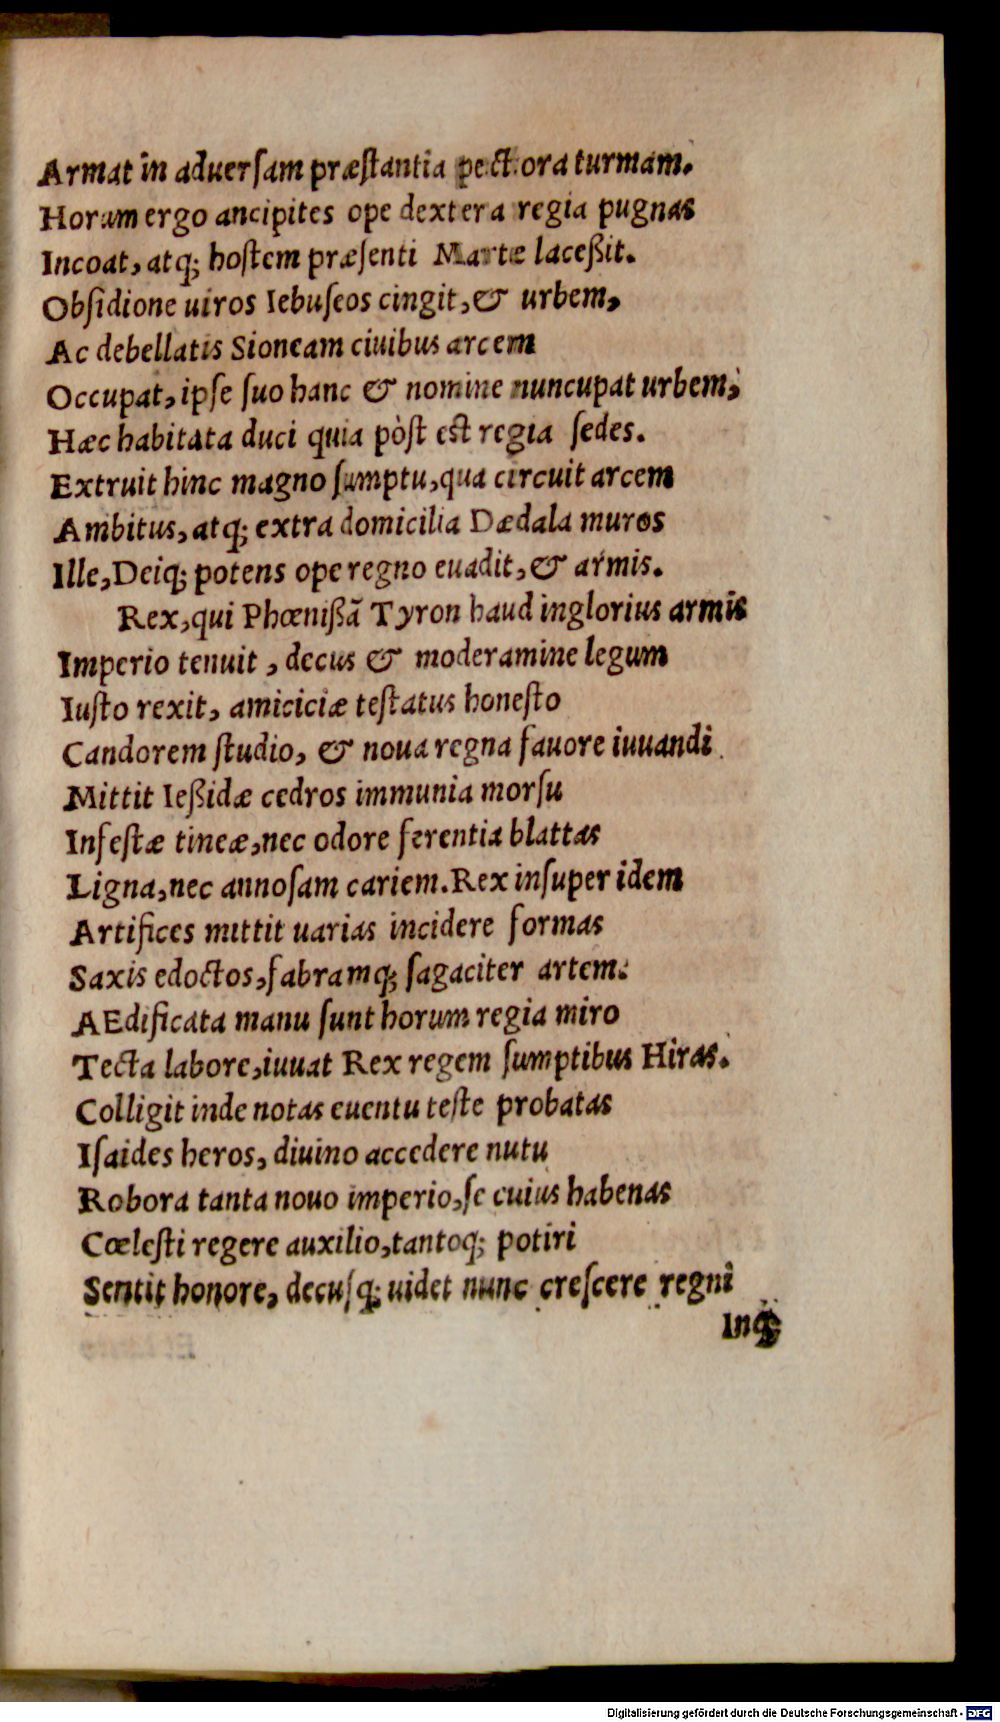 Armat in aduerſam præſtantia pectora turmam.
Horum ergo ancipites ope dextera regia pugnas
Incoat, atq; hoſtem præſenti Marte laceßit.
Obſidione uiros Iebuſeos cingit, & urbem,
Ac debellatis Sioneam ciuibus arcem
Occupat, ipſe ſuo hanc & nomine nuncupat urbem,
Hæc habitata duci quia pòſt eſt regia ſedes.
Extruit hinc magno ſumptu, qua circuit arcem
Ambitus, atq; extra domicilia Dædala muros
Ille, Deiq; potens ope regno euadit, & armis.
Rex, qui Phœnißā Tyron haud inglorius armis
Imperio tenuit, decus & moderamine legum
Iuſto rexit, amiciciæ teſtatus honeſto
Candorem ſtudio, & noua regna fauore iuuandi
Mittit Ießidæ cedros immunia morſu
Infeſtæ tineæ, nec odore ferentia blattas
Ligna, nec annoſam cariem. Rex inſuper idem
Artifices mittit uarias incidere formas
Saxis edoctos, fabramq; ſagaciter artem.
AEdificata manu ſunt horum regia miro
Tecta labore, iuuat Rex regem ſumptibus Hiras.
Colligit inde notas euentu teſte probatas
Iſaides heros, diuino accedere nutu
Robora tanta nouo imperio, ſe cuius habenas
Cœleſti regere auxilio, tantoq; potiri
Sentit honore, decuſq; uidet nunc creſcere regni
Inq;
Digitalisierung gefördert durch die Deutsche Forschungsgemeinschaft - DFG